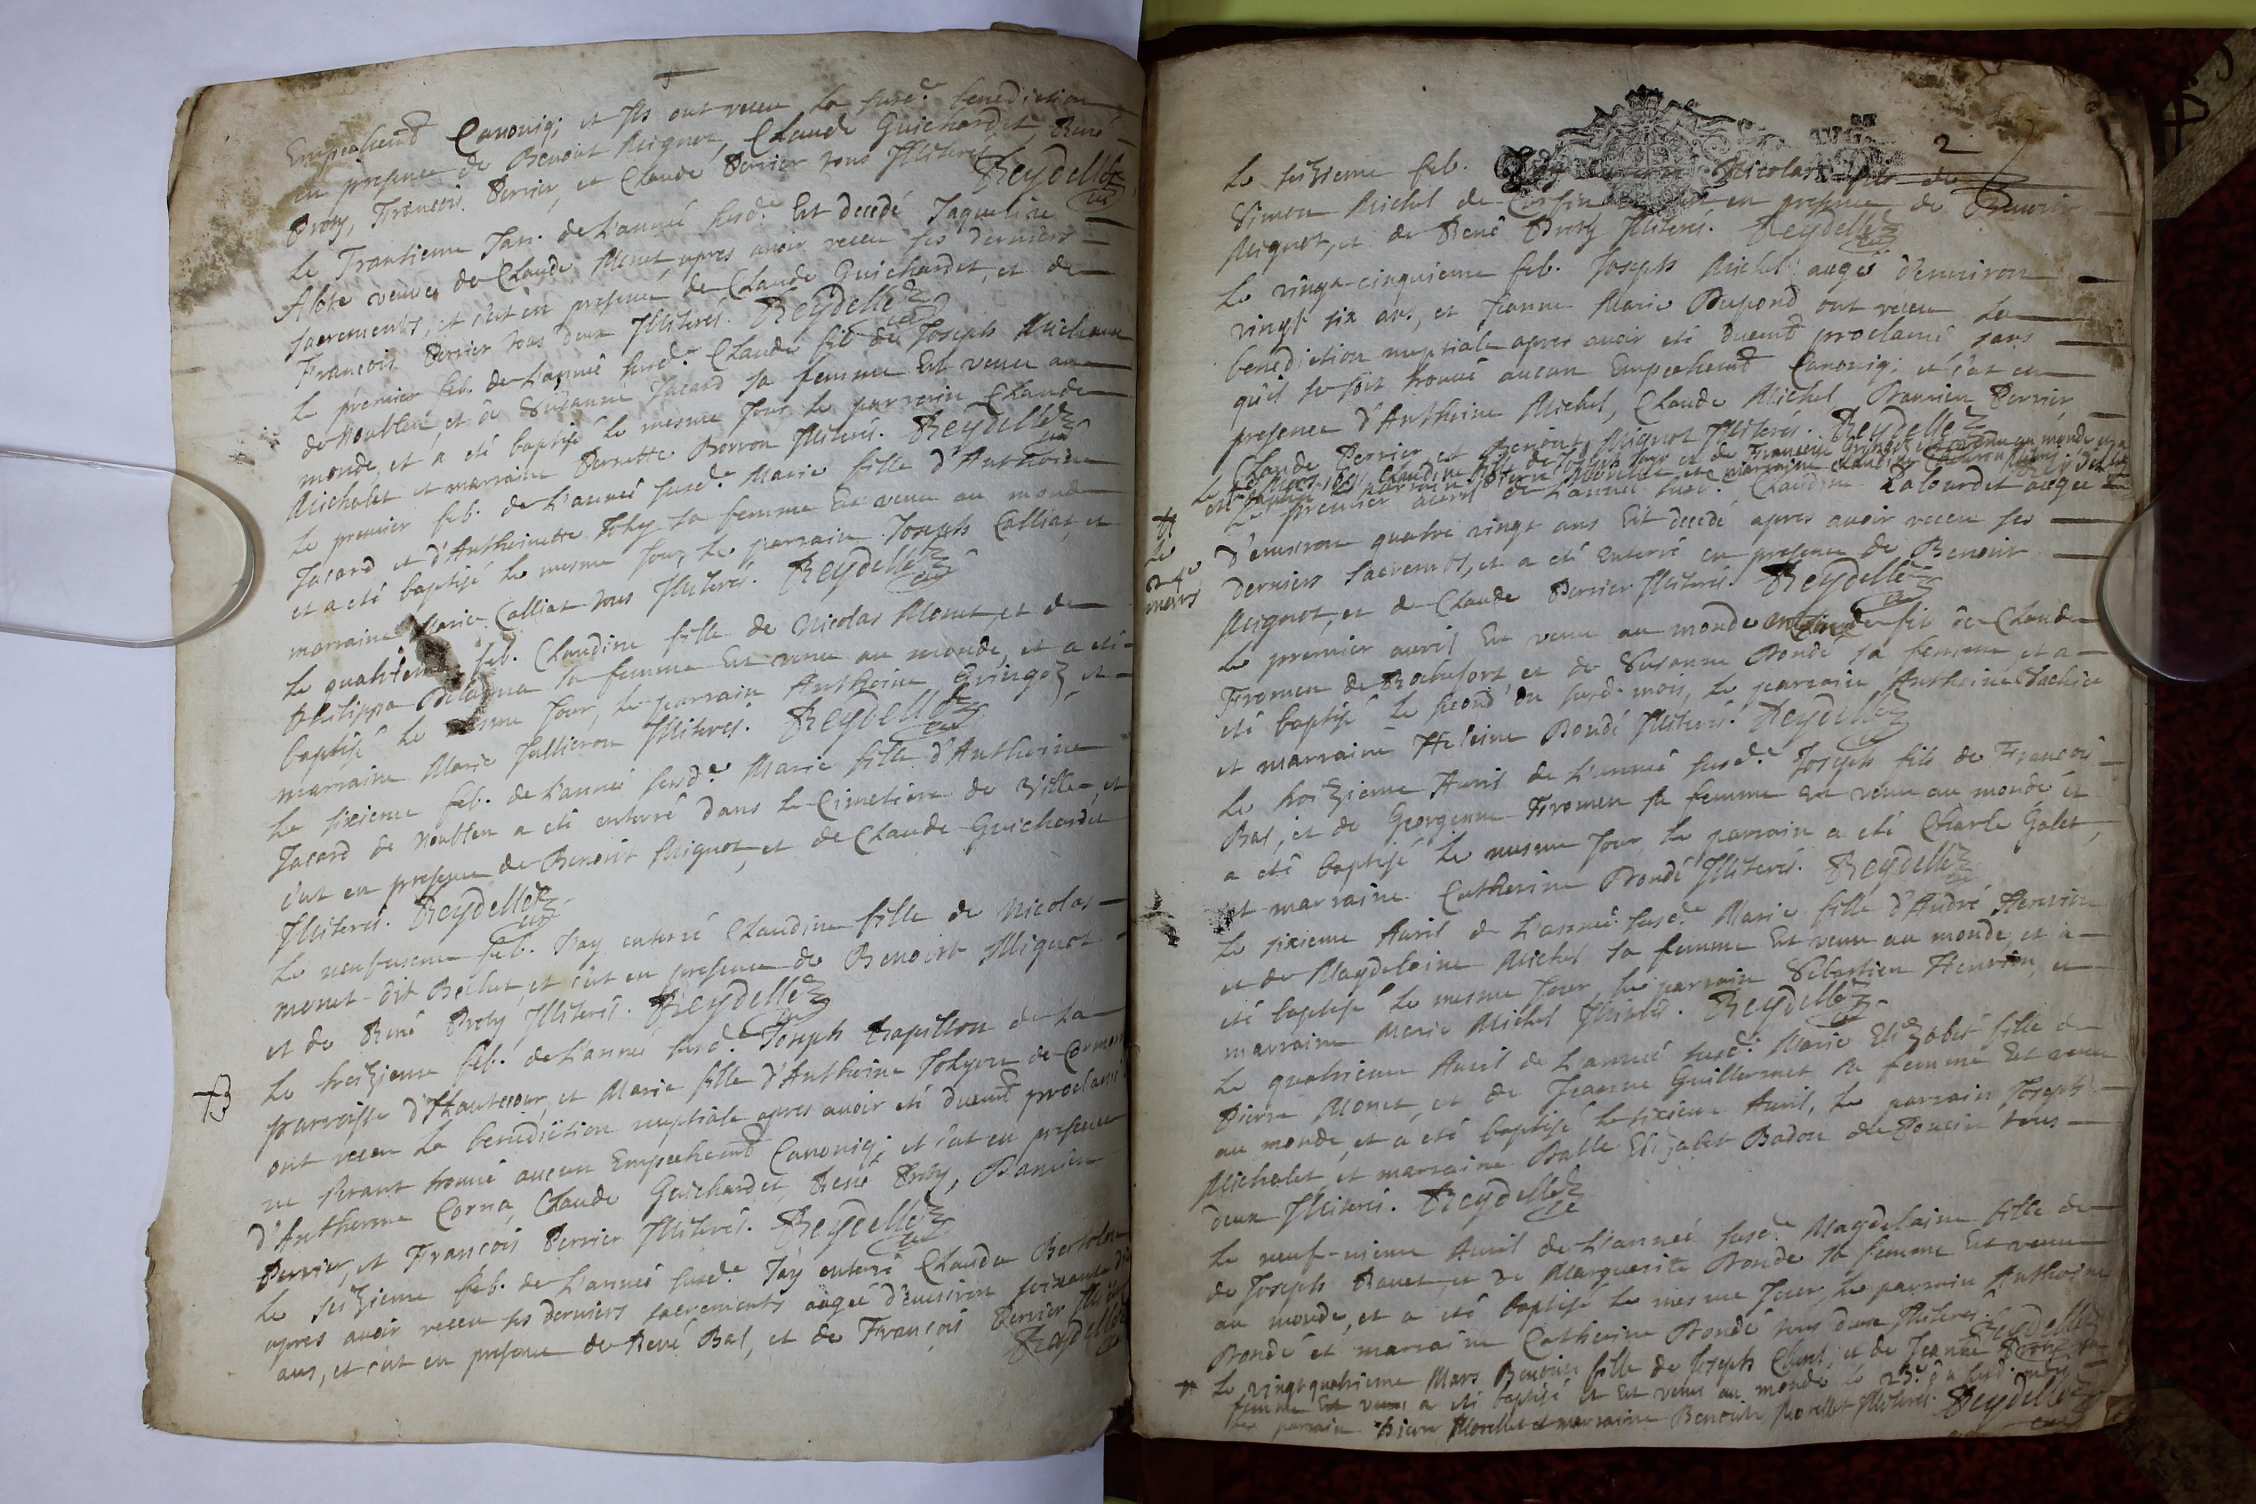 Empechemt Canoniq; et ils ont receu la susd.e benediction
en presence de Benoit Mignot, Claude Guichardet, René
Proty, François Perrier, et Claude Perrier tous Illiterés. Reydellet
Le Trantieme Jan. de L'année susd.e Est decedé Jaqueline
Abte veuve de Claude Monet apres avoir receu ses derniers
sacrements, et c'est en presence de Claude Guichardet, et de
François Perrier tous deux Illiterés. Reydellet
Le premier feb. de L'année susd.e Claude fils de Joseph
de noublen, et de Susanne Jacard sa femme Est venu au
monde, et a eté baptisé le mesme Jour, le parrain Claude
Michalet et marraine Pernette Borron Illiterés. Reydellet
Le premier feb. de L'année susd.e Marie fille d'Anthoine
Jacard et d'Anthoinette sa femme Est venue au monde
et a eté baptisé le mesme Jour, Le parrain Joseph Calliat, et
marraine Marie Calliat tous Illiterés. Reydellet
Le quatrieme feb. Claudine fille de Nicolas Monet, et de
Philippa sa femme Est venue au monde, et a eté
baptisé le mesme Jour, le parrain Anthoine et
marraine Marie Jullieron Illiterés. Reydellet
Le sixieme feb. de L'année susd.e Marie fille d'Anthoine
Jacard de noublen a eté enterré dans le Cimetiere de Ville, et
c'est en presence de Benoit Mignot, et de Claude Guichardet
Illiterés. Reydellet
Le neufvieme feb. J'ay enterré Claudine fille de Nicolas
monet dit Bellet, et c'est en presence de Benoit Mignot
et de René Proty Illiterés. Reydellet
Le treizieme feb. de L'année susd.e Joseph Papillon de La
parroisse d'Hautecour, et Marie fille d'Anthoine de
ont receu la benediction nuptiale apres avoir eté duemt proclamé
ne s'etant trouvé aucun Empechemt Canoniq; et c'est en presence
d'Anthoine Corna, Claude Guichardet, René Proty,
Perrier, et François Perrier Illiterés. Reydellet
Le seizieme feb. de L'année susd.e J'ay enterré Claude
apres avoir receu ses derniers sacrements augée d'environ soixante
ans, et c'est en presence de René Bal, et de François Perrier Reydellet
2
Le seizieme feb. Nicolas fils de
Simon Michel de en presence de Benoit
Mignot, et de René Proty Illiterés. Reydellet
Le vingt-cinquieme feb. Joseph Michel augé d'environ
vingt six ans, et Jeanne Marie Dupond ont receu la
benediction nuptiale apres avoir eté duemt proclamé sans
qu'il se soit trouvé aucun Empechemt Canoniq; et c'est en
presence d'Anthoine Michel, Claude Michel, Perrier
Claude Perrier, et Benoit Mignot Illiterés. Reydellet
Le Mars Claudine fille de et de Françoise venue au monde et a
eté parrain et marraine Claudine
Le premier avril de L'année susd.e Claudine augée
d'environ quatre vingt ans Est decedé apres avoir receu ses
derniers Sacremts, et a eté enterré en presence de Benoit
Mignot, et de Claude Perrier Illiterés. Reydellet
le
24e
mars
Le premier avril Est venu au monde fils de Claude
Fromen de Rochefort et de Susanne Bondé sa femme, et a
eté baptisé le second du susd. mois, le parrain Anthoine
et marraine Heleine Bondé Illiterés. Reydellet
Le Avril de L'année susd.e Joseph fils de François
Bal, et de Georgenne Fromen sa femme Est venu au monde et
a eté baptisé le mesme Jour, le parrain a eté Charle Galet,
et marraine Catherine Bondé Illiterés. Reydellet
Le sixieme Avril de L'année susd.e Marie fille d'André
et de Magdelaine Michel sa femme Est venue au monde, et a
eté baptisé le mesme Jour, le parrain Sebastien et
marraine Marie Michel Illiterés. Reydellet
Le quatrieme Avril de L'année susd.e Marie Elizabet fille de
Pierre Monet, et de Jeanne Guillermet sa femme Est venue
au monde, et a eté baptisé le sixieme Avril, Le parrain Joseph
Michalet et marraine Elizabet Badou de Poncin tous
deux Illiterés. Reydellet
Le neuf-vieme Avril de L'année susd.e Magdelaine fille de
de Joseph Ravet, et de Marguerite Bondé sa femme Est venue
au monde, et a eté baptisé le mesme Jour, Le parrain Anthoine
Bondé et marraine Catherine Bondé tous deux Illiterés. Reydellet
Le vingt quatrieme Mars Benoite fille de Joseph et de Jeanne
femme a eté baptisé et Est venue au monde le 23.e
le parrain Pierre Morellet et marraine Benoite Morellet Illiterés. Reydellet